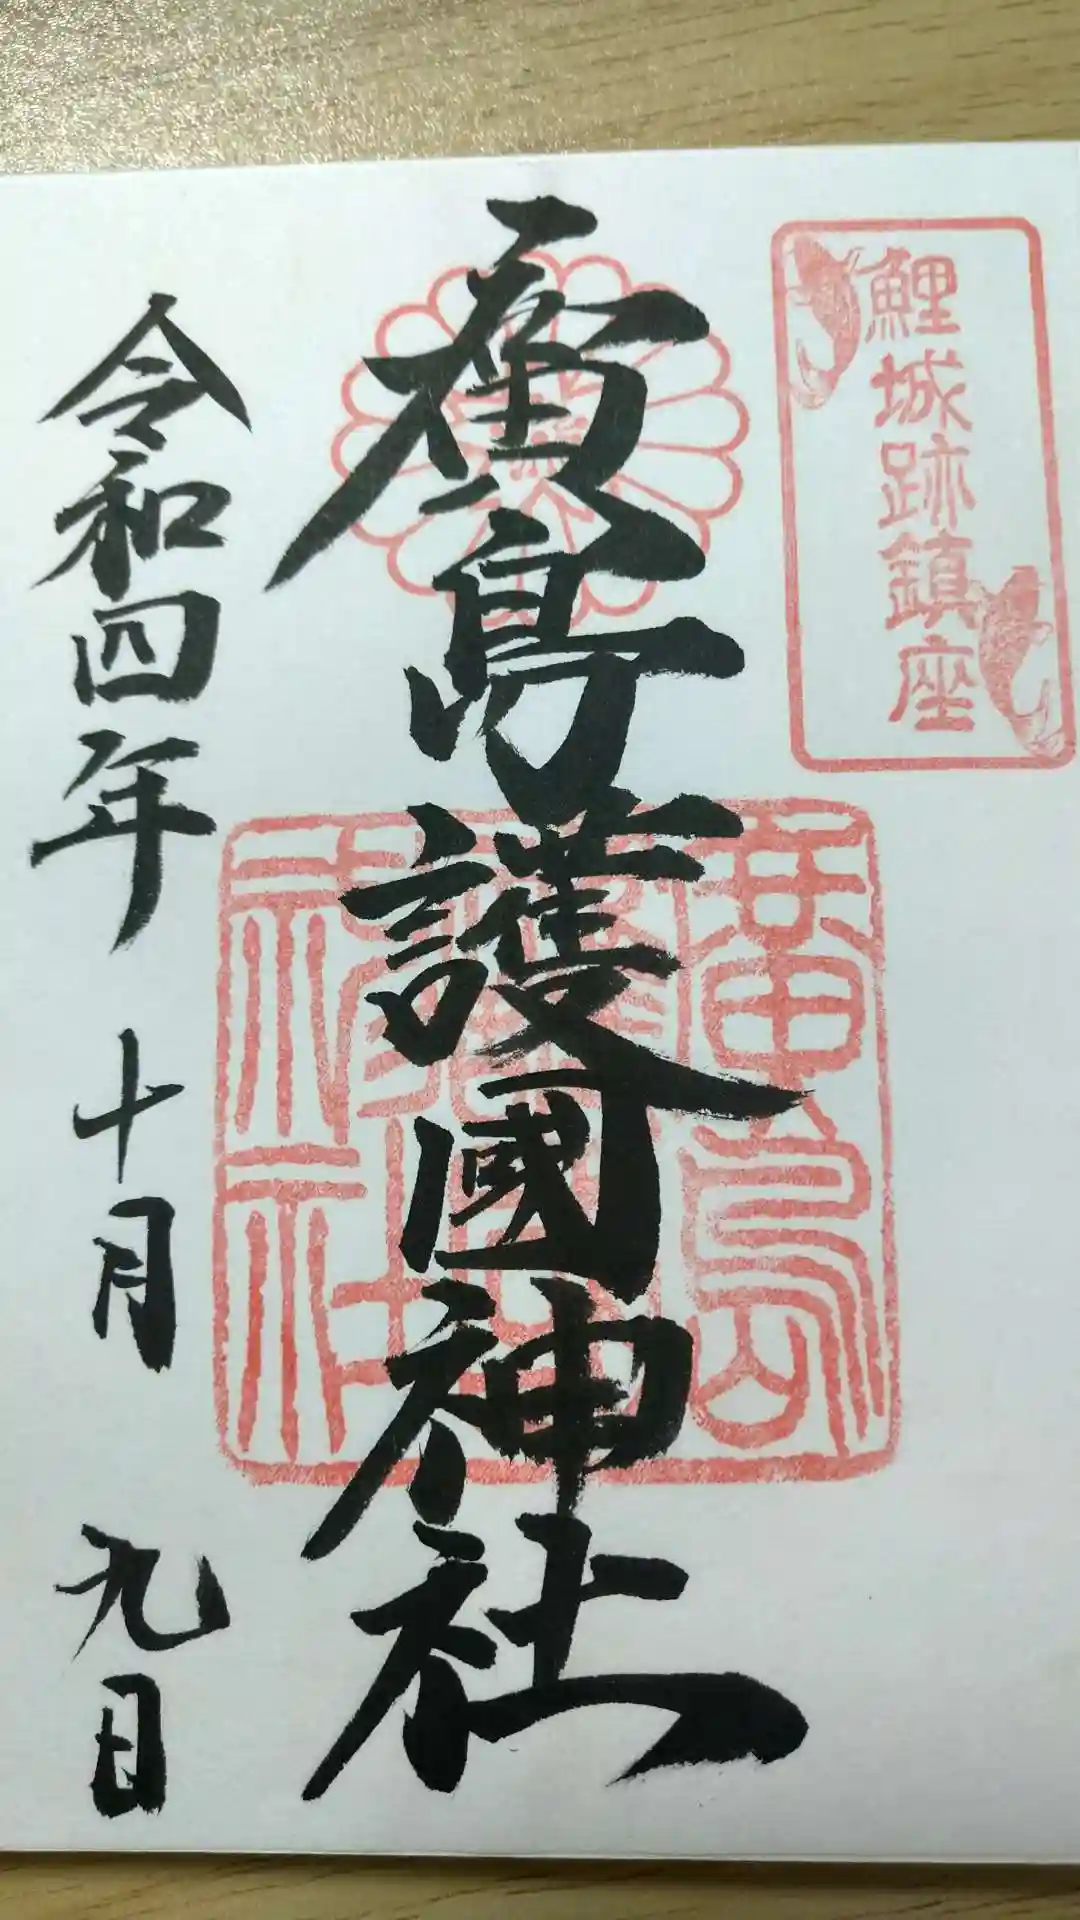 鯉城跡鎮座
廣島護國神社
廣島護國神社
令和四年十月九日